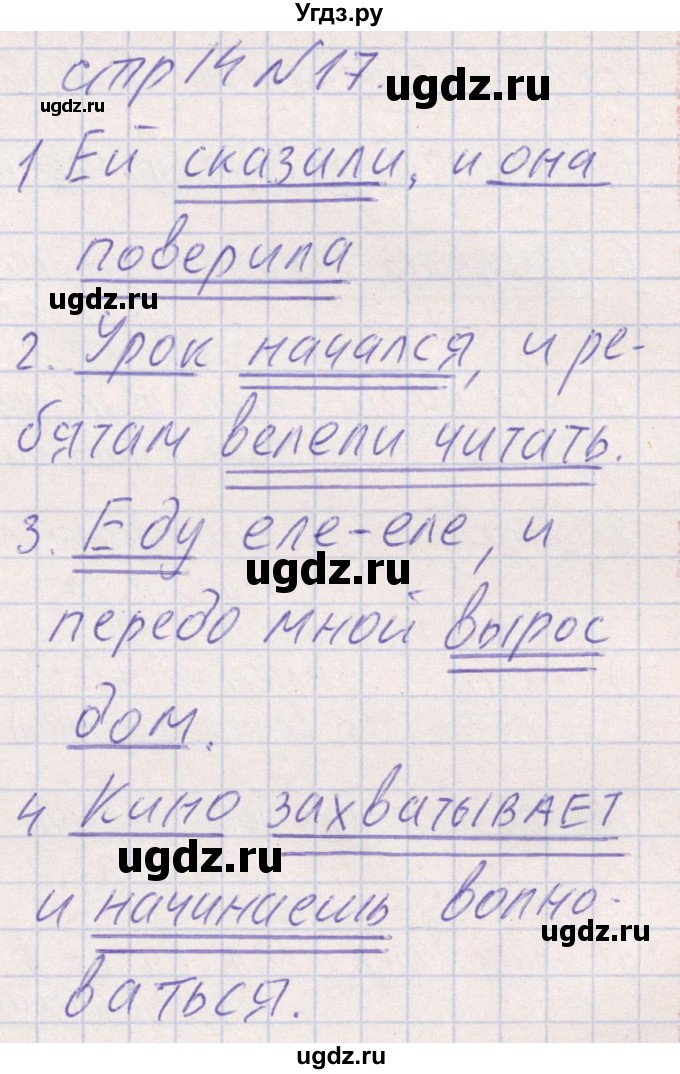 Угдз.ру
стр 14 №17.
ugdz.ru
ugdz.ru
1 Ей сказили, и она
поверила
ugdz.ru
2. Урок начался, и ре-
бятам велели читать.
3. Еду еле-еле, и
ugdz.ru
передо мной вырос
дом.
4 Кино захватывает
ugdz.ru
и начинаешь волно-
ugdz.ru
ваться.
ugdz.ru